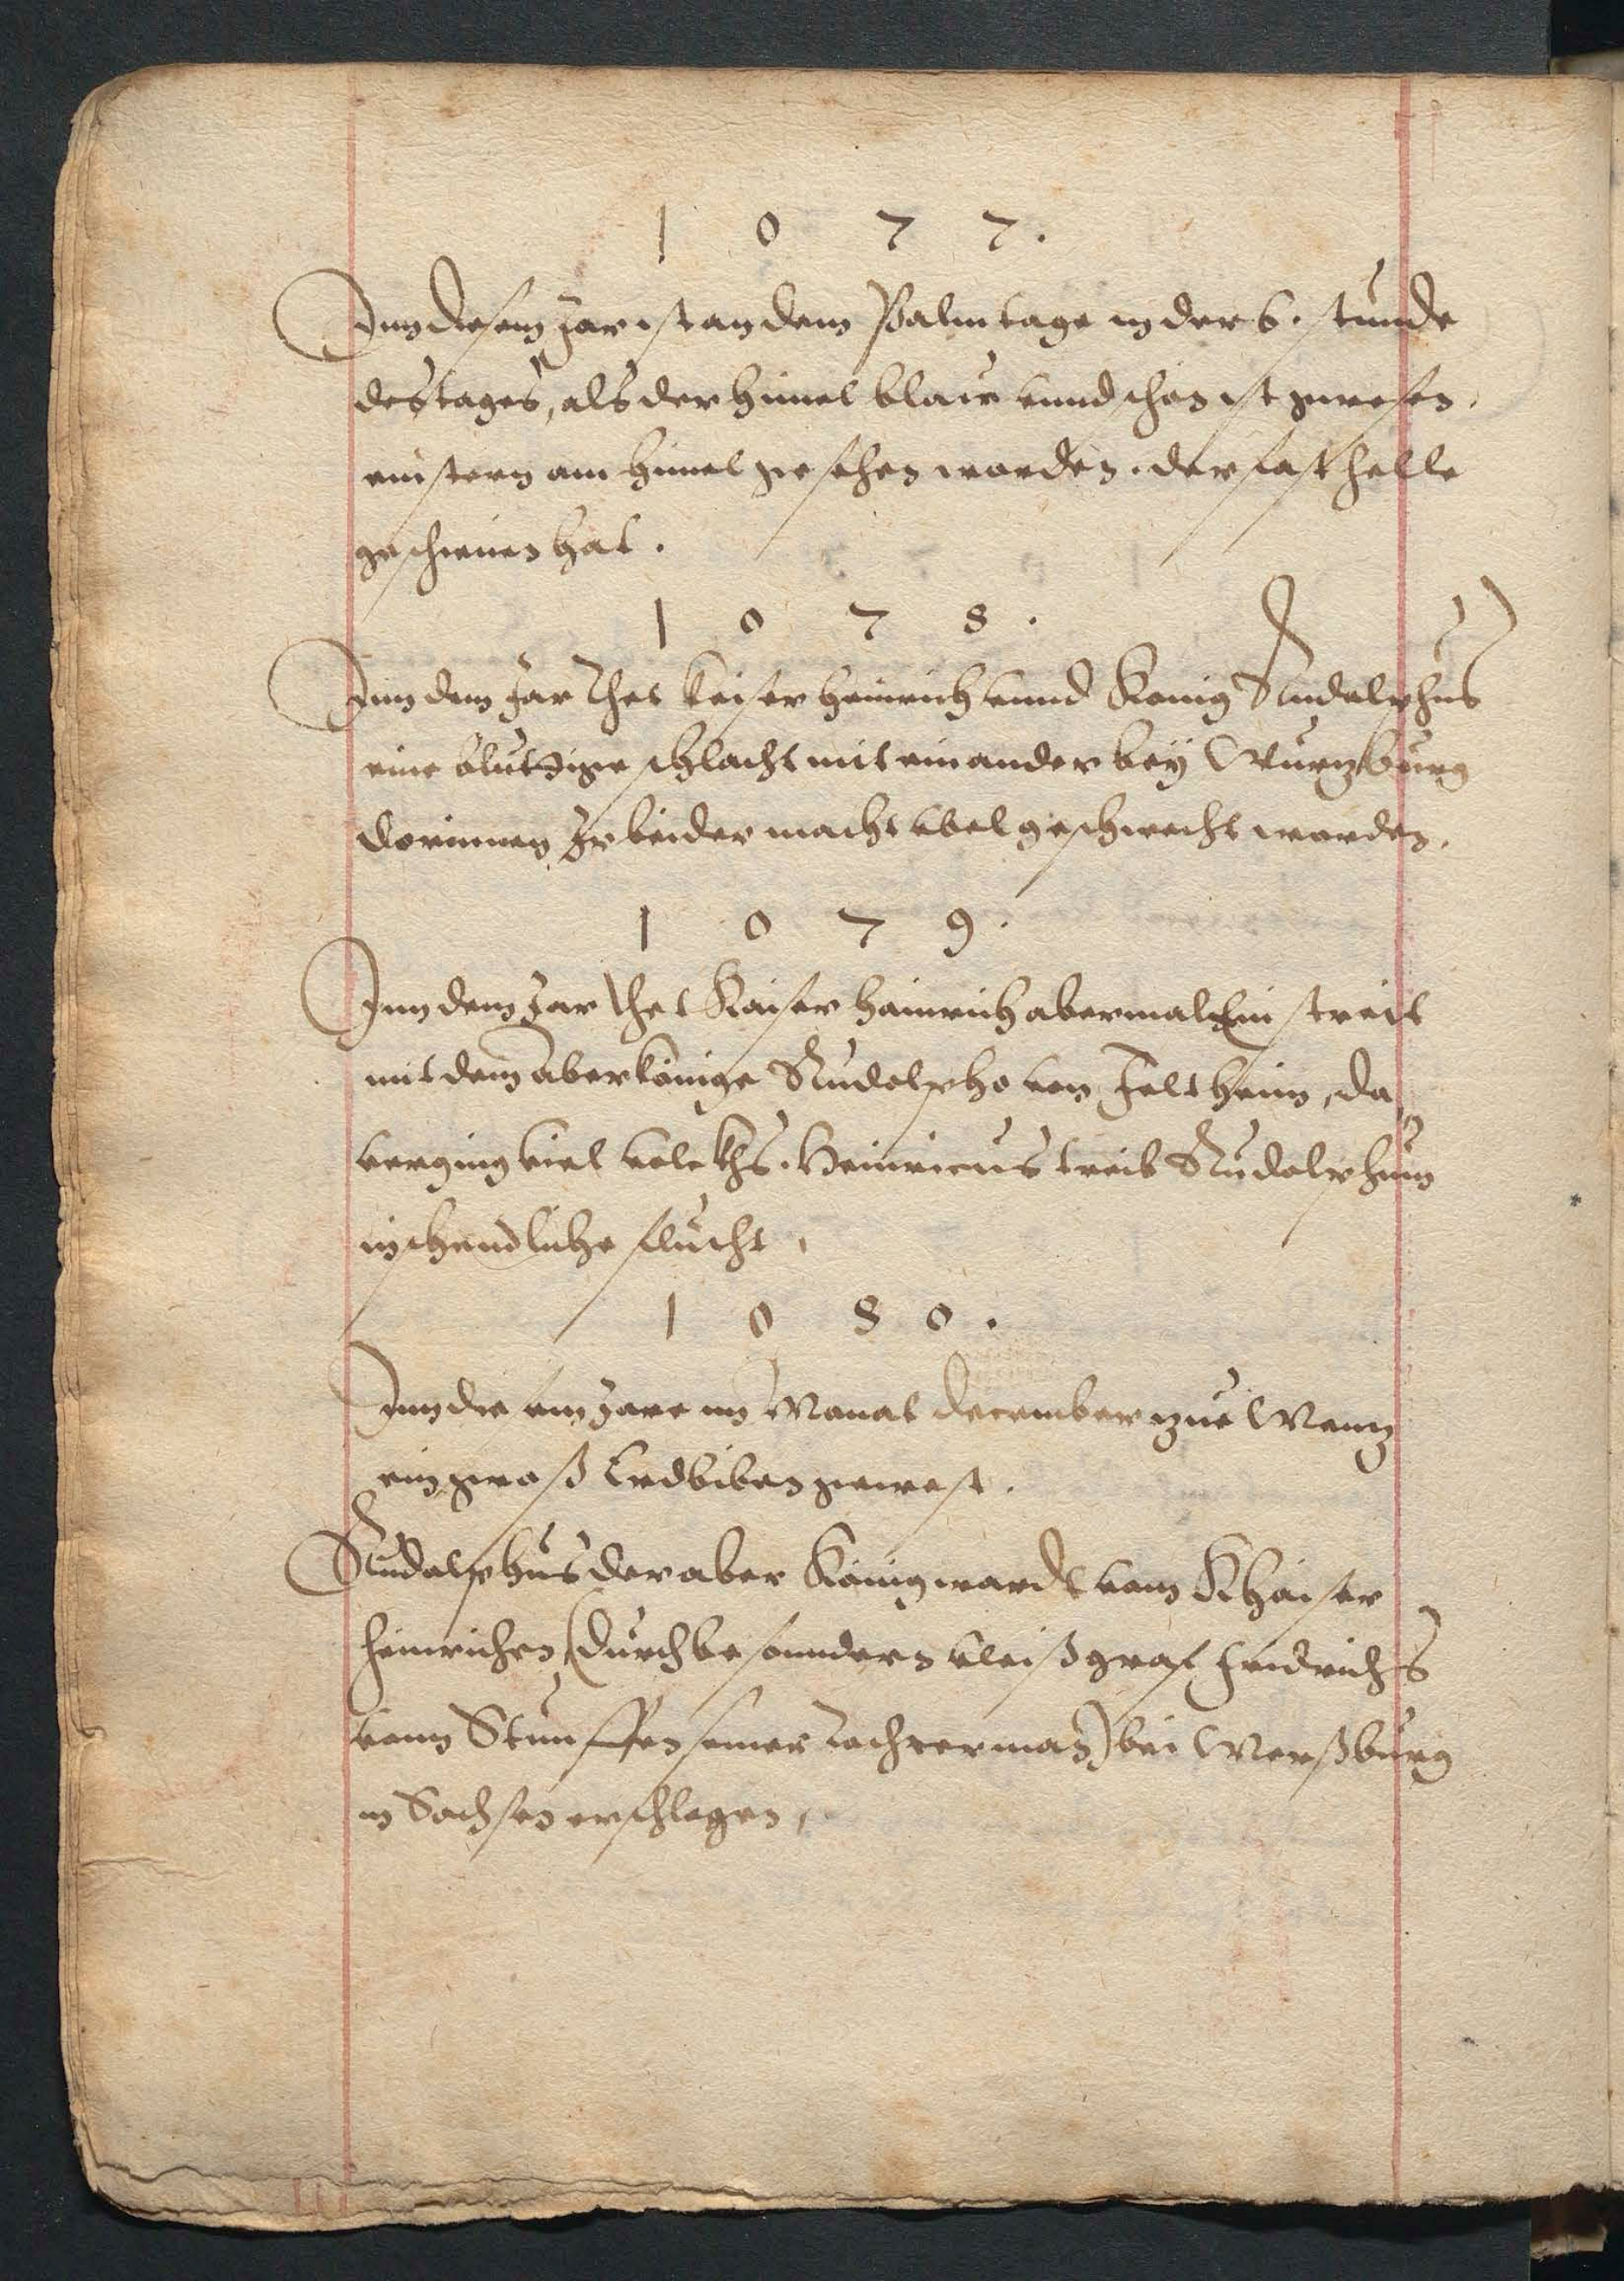 1 0 7 7.
Inn diesem Jar ist an dem Palmtage in der 6. stunde
des tages, als der himel blaw vnnd schon ist gewesen,
ein stern am himel gesehen worden. der fast helle
geschienen hat.
1 0 7 8.
Inn dem Jar thet Keiser Heinrich vnnd Konig Rudolphus
eine bluttige schlacht mit einander bey Wurtzburg
dorinnen Jr beider macht vbel geschwecht worden.
1 0 7 9.
Inn dem Jar thet Kaiser Hainrich abermal Ein streit
mit dem aberkönige Rudolpho von Feltheim, da
verging viel volckhs. Heinricus treib Rudolphum
in schendliche flucht,
1 0 8 0.
Inn dem Jare im Monat December zue Mentz
ein gross Erdbiben gewest.
Rudolphus der aber König wardt vom Khaiser
Heinrichen, (durch besonndern vleiß graf Fridrichs
vonn Stauffen seiner Tochterman) bei Merßburg
in Sachsen erschlagen,